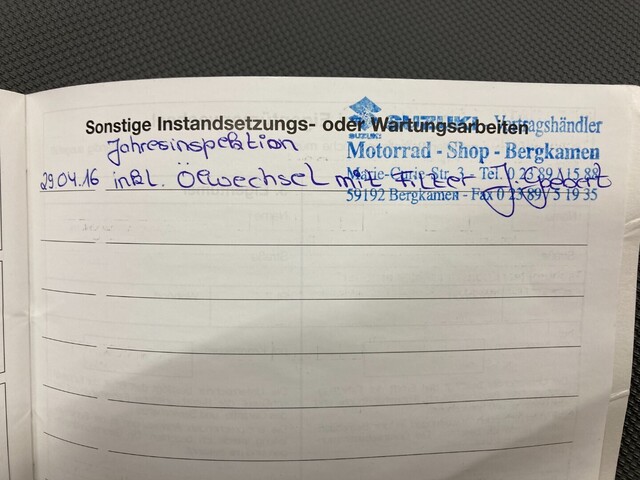 Sonstige Instandsetzungs- oder Wartungsarbeiten
SUZUKI
SUZUKI Vertragshändler
Motorrad - Shop - Bergkamen
Marie-Curie-Str. 3 - Tel. 0 23 89 / 5 15 88
59192 Bergkamen - Fax 0 23 89 / 5 19 35
Jahresinspektion
29.04.16 inkl. Ölwechsel mit Filter